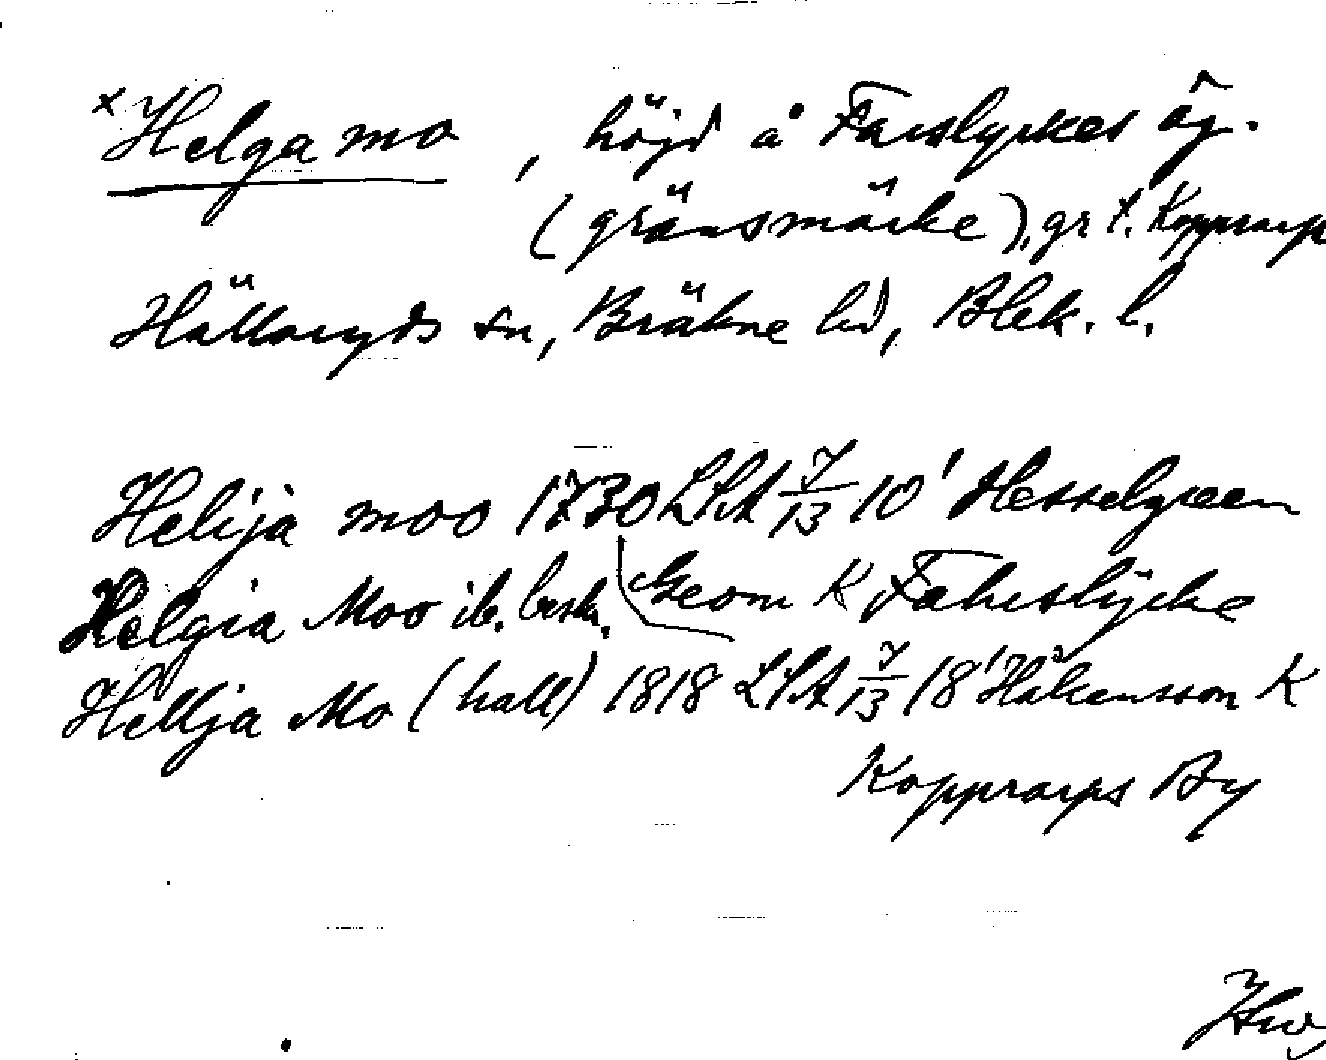 x Helga mo, höjd å Farslyckes äg.
(gränsmärke), gr t. Kopprarp
Hällaryds sn, Bräkne hd, Blek. l.
Helija moo 1730 LSA 7/13 10' Hesselgreen
Helgia Moo ib. beskr. Geom K Fahrslÿcke
Hellja Mo (hall) 1818 LSA 7/13 18' Håkansson K
Kopprarps By